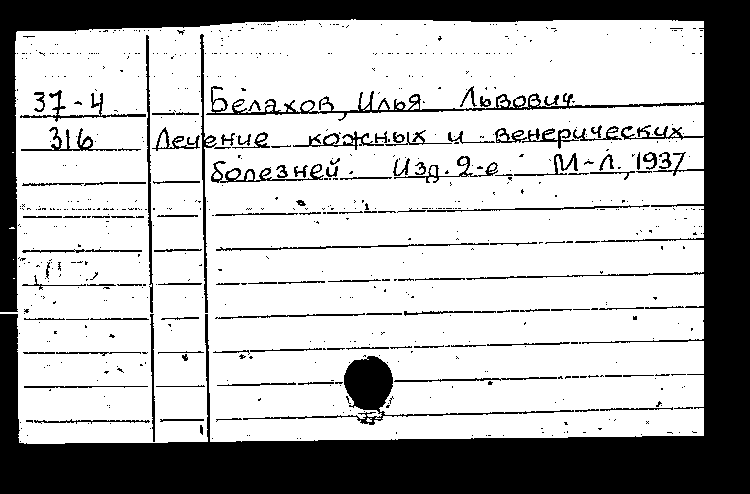 37-4 Белахов, Илья Львович
316 Лечение кожных и венерических
болезней. Изд. 2-е, М-Л., 1937